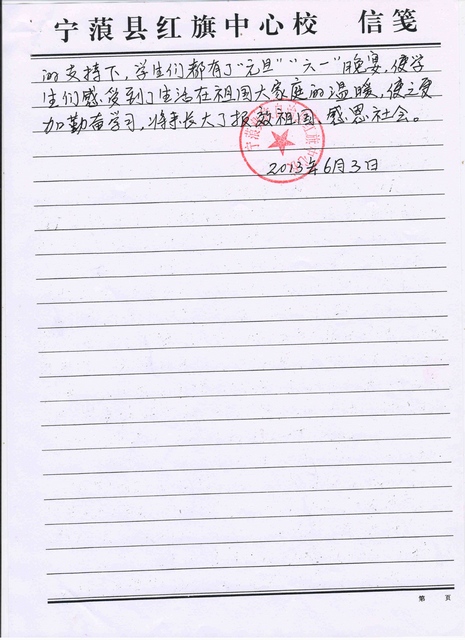 宁蒗县红旗中心校 信笺
的支持下，学生们都有了“元旦”“六一”晚宴，使学
生们感受到了生活在祖国大家庭的温暖，使之更
加勤奋学习，将来长大了报效祖国、感恩社会。
2013年6月3日
第 页